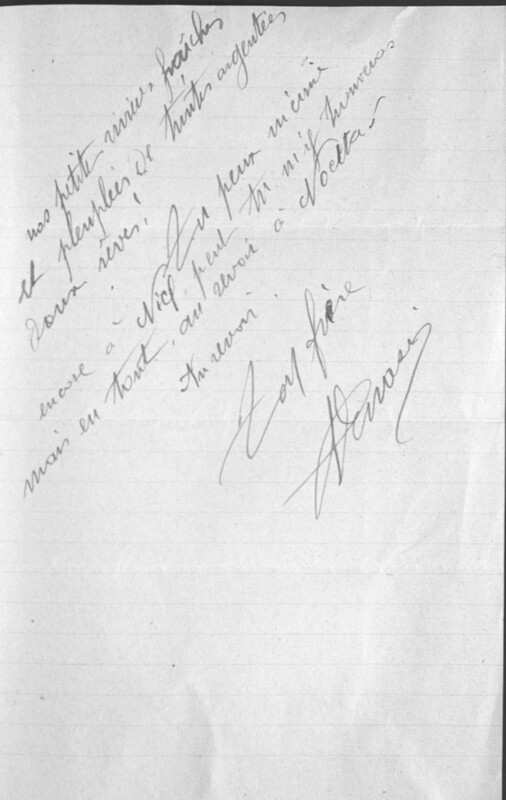 nos petites rivières fraîches
et pleuplées de truites argentées
doux rêves!
Tu peux m'écrire
encore à Nice, peut tu m'y trouveras
mais en tout, au revoir à Nocetta
Au revoir.
Ton frère